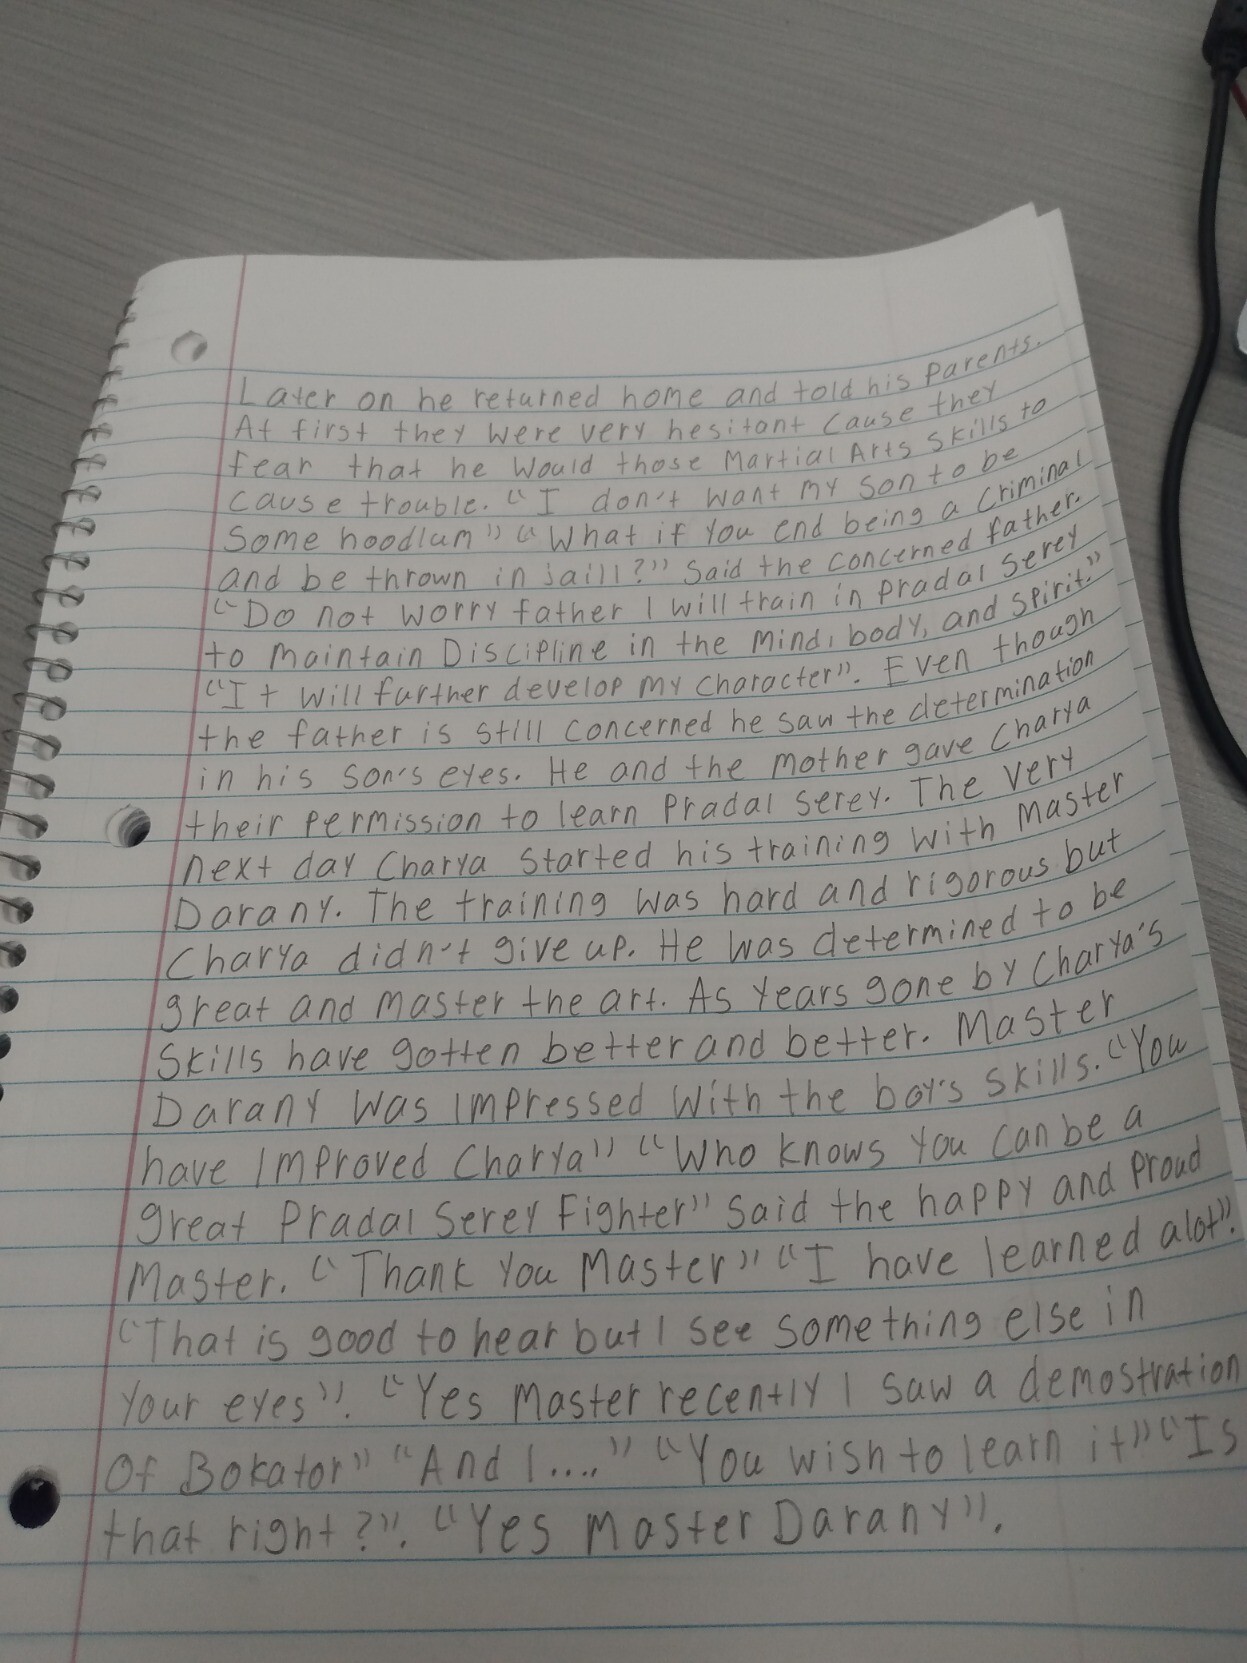 Later on he returned home and told his parents.
At first they were very hesitant cause they
fear that he would those Martial Arts skills to
cause trouble. "I don't want my son to be
some hoodlum" "What if you end being a criminal
and be thrown in jaill?" Said the concerned father.
"Do not worry father I will train in Pradal Serey
to maintain Discipline in the mind, body, and spirit."
"It will further develop my character". Even though
the father is still concerned he saw the determination
in his son's eyes. He and the mother gave Charya
their permission to learn Pradal Serey. The very
next day Charya started his training with Master
Darany. The training was hard and rigorous but
Charya didn't give up. He was determined to be
great and master the art. As years gone by Charya's
Skills have gotten better and better. Master
Darany was impressed with the boy's skills. "You
have improved Charya" "Who knows you can be a
great Pradal Serey Fighter" Said the happy and proud
Master. "Thank you Master" "I have learned alot".
"That is good to hear but I see something else in
your eyes". "Yes Master recently I saw a demostration
Of Bokator" "And I...." "You wish to learn it" "Is
that right?". "Yes Master Darany".